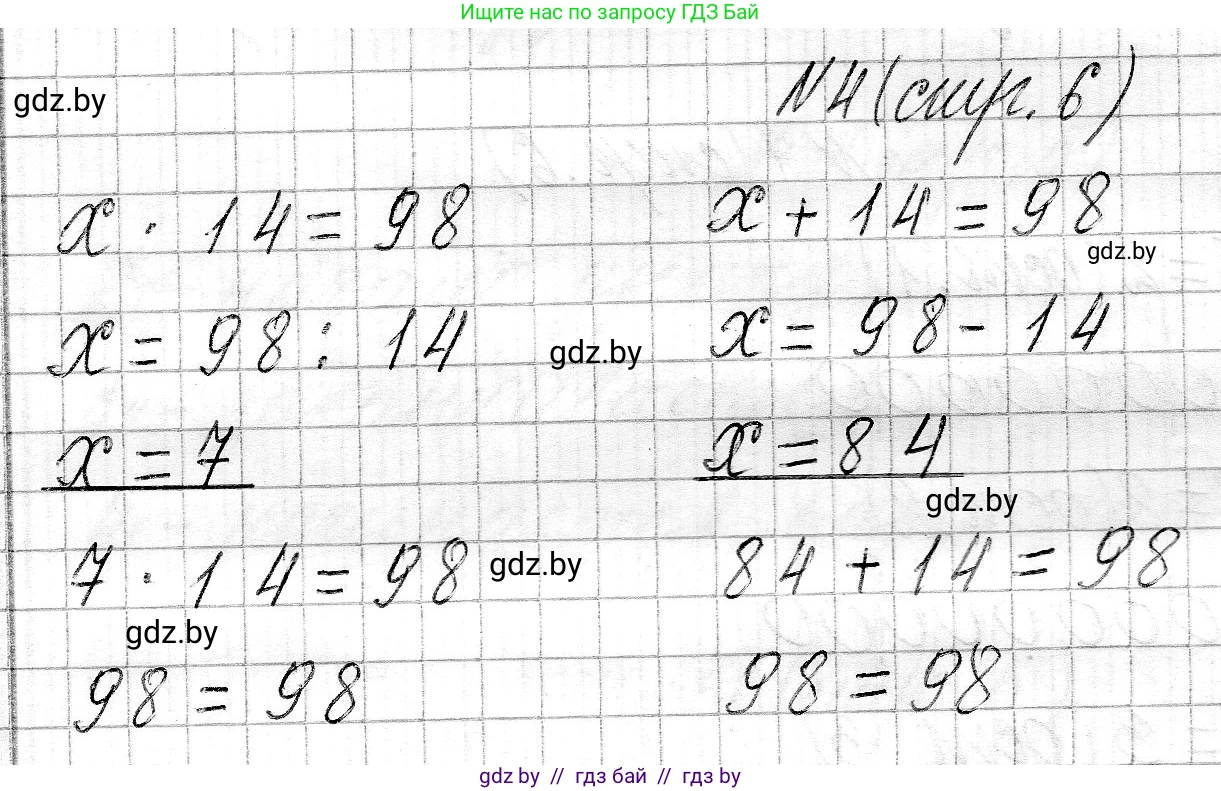 Ищите нас по запросу ГДЗ Бай
gdz.by
N4 (стр. 6)
x · 14 = 98
x + 14 = 98
gdz.by
x = 98 : 14
gdz.by
x = 98 - 14
x = 7
x = 84
gdz.by
7 · 14 = 98
gdz.by
84 + 14 = 98
gdz.by
98 = 98
98 = 98
gdz.by // гдз бай // гдз by